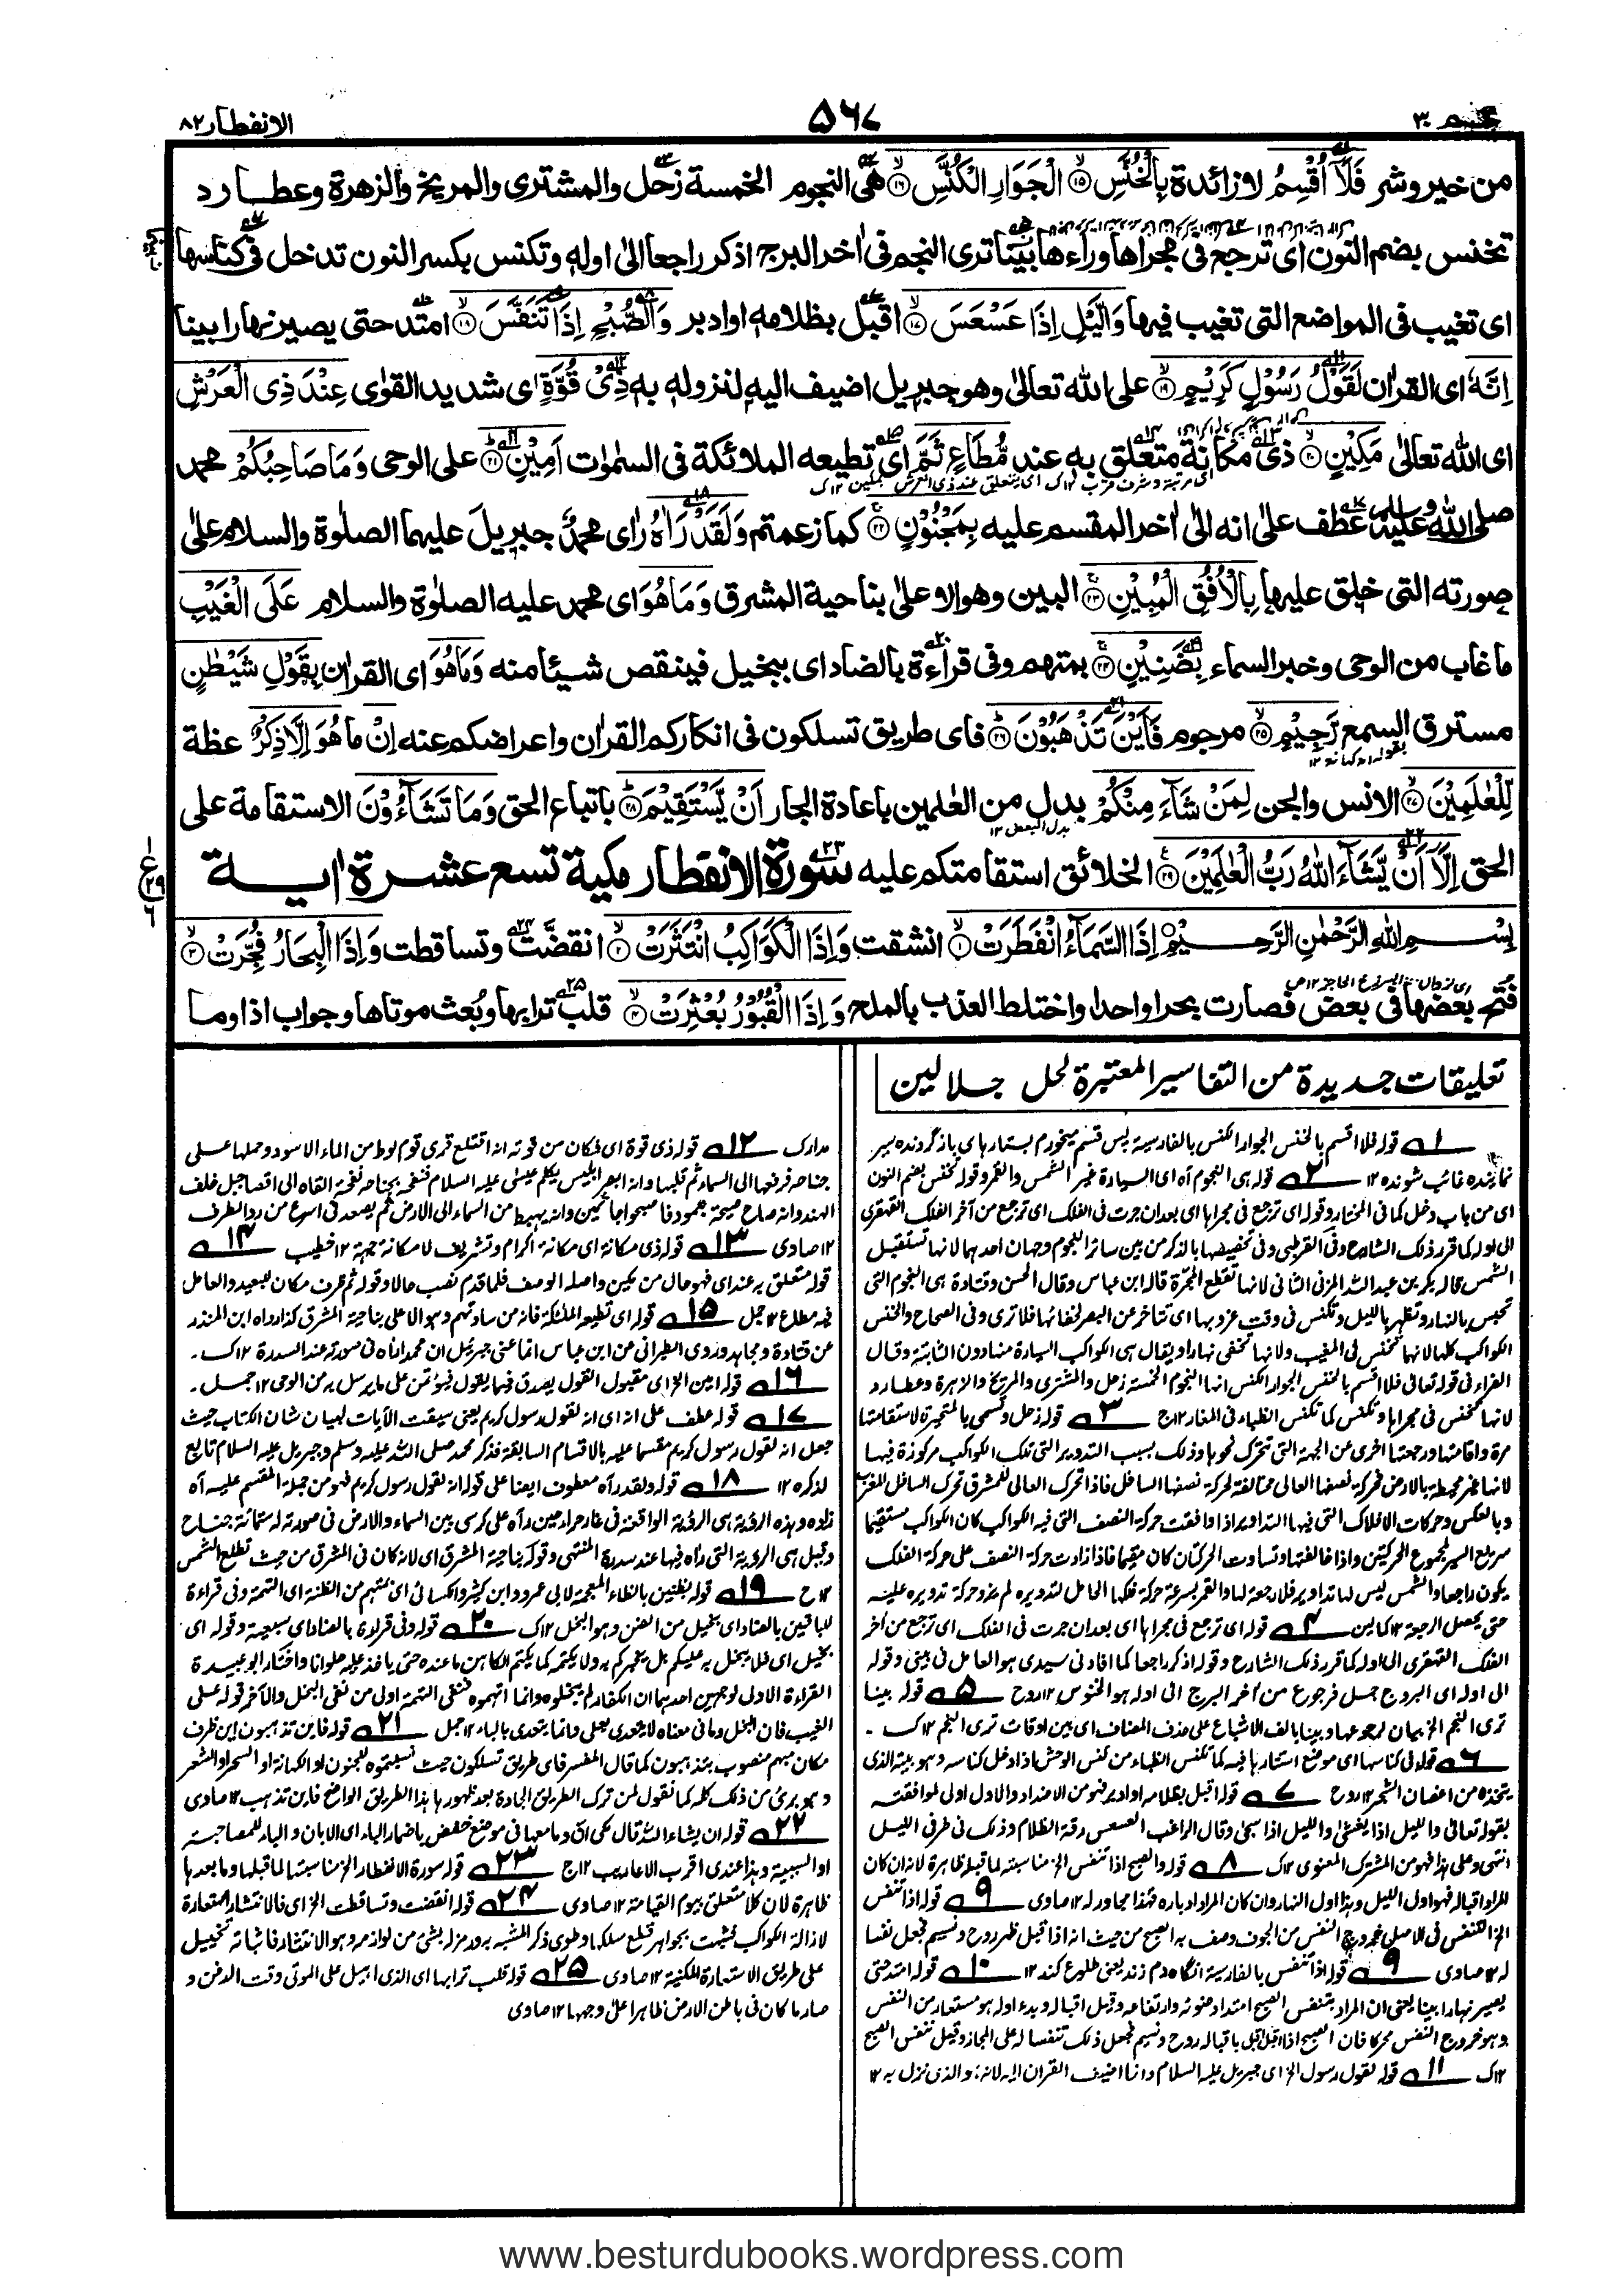 عم ٣٠
٥٦٧
الانفطار ٨٢
من خير وشر فَلَآ اُقْسِمُ لا زائدة بِالْخُنَّسِ ۙ۝۱۵ الْجَوَارِ الْكُنَّسِ ۙ۝۱۶ هى النجوم الخمسة زحل والمشترى والمريخ والزهرة وعطارد
تخنس بضم النون اى ترجع فى مجراها وراءها بينا ترى النجم فى اٰخر البرج اذ كر راجعا الى اوله وتكنس بكسر النون تدخل فى كناسها
اى تغيب فى المواضع التى تغيب فيها وَالَّيْلِ اِذَا عَسْعَسَ ۙ۝۱۷ اقبل بظلامه او ادبر وَالصُّبْحِ اِذَا تَنَفَّسَ ۙ۝۱۸ امتد حتى يصير نهارا بينا
اِنَّهٗ اى القراٰن لَقَوْلُ رَسُوْلٍ كَرِيْمٍ ۙ۝۱۹ على الله تعالىٰ وهو جبريل اضيف اليه لنزوله به ذِىْ قُوَّةٍ اى شديد القوٰى عِنْدَ ذِى الْعَرْشِ
اى الله تعالىٰ مَكِيْنٍ ۙ۝۲۰ ذى مكانة متعلق به عند مُّطَاعٍ ثَمَّ اى تطيعه الملائكة فى السمٰوٰت اَمِيْنٍ ؕ۝۲۱ على الوحى وَمَا صَاحِبُكُمْ محمد
صلى الله عليه وسلم عطف علىٰ انه الىٰ اٰخر المقسم عليه بِمَجْنُوْنٍ ۚ۝۲۲ كما زعمتم وَلَقَدْ رَاٰهُ راٰى محمدٌ جبريلَ عليهما الصلوٰة والسلام علىٰ
صورته التى خلق عليها بِالْاُفُقِ الْمُبِيْنِ ۚ۝۲۳ البين وهو الاعلىٰ بناحية المشرق وَمَا هُوَ اى محمد عليه الصلوٰة والسلام عَلَى الْغَيْبِ
ما غاب من الوحى وخبر السماء بِضَنِيْنٍ ۚ۝۲۴ بمتهم وفى قراءة بالضاد اى ببخيل فينقص شيئا منه وَمَا هُوَ اى القراٰن بِقَوْلِ شَيْطٰنٍ
مسترق السمع رَّجِيْمٍ ۙ۝۲۵ مرجوم فَاَيْنَ تَذْهَبُوْنَ ؕ۝۲۶ فاى طريق تسلكون فى انكاركم القراٰن واعراضكم عنه اِنْ ما هُوَ اِلَّا ذِكْرٌ عظة
لِّلْعٰلَمِيْنَ ۙ۝۲۷ الانس والجن لِمَنْ شَآءَ مِنْكُمْ بدل من العٰلمين باعادة الجار اَنْ يَّسْتَقِيْمَ ؕ۝۲۸ باتباع الحق وَمَا تَشَآءُوْنَ الاستقامة على
الحق اِلَّآ اَنْ يَّشَآءَ اللّٰهُ رَبُّ الْعٰلَمِيْنَ ۝۲۹ الخلائق استقامتكم عليه سورة الانفطار مكية تسع عشرة اٰية
بِسْمِ اللّٰهِ الرَّحْمٰنِ الرَّحِيْمِ ۝ اِذَا السَّمَآءُ انْفَطَرَتْ ۙ۝۱ انشقت وَاِذَا الْكَوَاكِبُ انْتَثَرَتْ ۙ۝۲ انقضت وتساقطت وَاِذَا الْبِحَارُ فُجِّرَتْ ۙ۝۳
فتح بعضها فى بعض فصارت بحرا واحدا واختلط العذب بالملح وَاِذَا الْقُبُوْرُ بُعْثِرَتْ ۙ۝۴ قلب ترابها وبُعث موتاها وجواب اذا وما
تعليقات جديدة من التفاسير المعتبرة لحل جلالين
١ قوله فلا اقسم بالخنس الجوار الكنس بالفارسية پس قسم ميخورم بستارہاى باز گردنده سير
نماينده غائب شونده ١٢ ٢ قوله هى النجوم آه اى السيارة غير الشمس والقمر وقوله تخنس بضم النون
اى من باب دخل كما فى المختار وقوله اى ترجع فى مجراها اى بعد ان جرت فى الفلك اى ترجع من آخر الفلك القهقرى
الى اوله كما قرر ذلك الشارح وفى القرطبى وفى تخصيصها بالذكر من بين سائر النجوم وجهان احدهما لانها تستقبل
الشمس قاله بكر بن عبد الله المزنى الثانى لانها تقطع المجرة قاله ابن عباس وقال الحسن وقتادة هى النجوم التى
تخنس بالنهار وتظهر بالليل وتكنس فى وقت غروبها اى تتاخر عن البصر لخفائها فلا ترى وفى الصحاح والخنس
الكواكب كلها لانها تخنس فى المغيب ولانها تخفى نهارا ويقال هى الكواكب السيارة منها دون الثابتة وقال
الفراء فى قوله تعالى فلا اقسم بالخنس الجوار الكنس انها النجوم الخمسة زحل والمشترى والمريخ والزهرة وعطارد
لانها تخنس فى مجراها وتكنس كما تكنس الظباء فى المغار ١٢ج ٣ قوله زحل وتسمى بالمتحيرة لاستقامتها
مرة واقامتها ورجعتها اخرى عن الجهة التى تتحرك نحوها وذلك بسبب التدوير التى تلك الكواكب مركوزة فيها
لانها غير محيطة بالارض فحركة نصفها العالى مخالفة لحركة نصفها السافل فاذا تحرك العالى للمشرق تحرك السافل للمغرب
وبالعكس وحركات الافلاك التى فيها التداوير اذا وافقت حركة النصف التى فيه الكواكب كان الكواكب مستقيما
سريع السير لمجموع الحركتين واذا خالفتها وتساوت الحركتان كان مقيما فاذا زادت حركة النصف على حركة الفلك
يكون راجعا والشمس ليس لها تداوير فلا رجعة لها والقمر بسرعة حركة فلكها الحامل لتدويره لم يزد حركة تدويره عليه
حتى يحصل الرجعة ١٢ كمالين ٤ قوله اى ترجع فى مجراها اى بعد ان جرت فى الفلك اى ترجع من آخر
الفلك القهقرى الى اوله كما قرر ذلك الشارح وقوله اذ كر راجعا كما افاد فى سيدى هو العامل فى بينى وقوله
الى اوله اى البروج جمل فرجوع من آخر البرج الى اوله هو الخنوس ١٢ روح ٥ قوله بينا
ترى النجم الخ بيان لرجوعها وبينا بالف الاشباع على حذف المضاف اى بين اوقات ترى النجم ١٢ك
٦ قوله فى كناسها اى موضع استتارها فيه كما تكنس الظباء من كنس الوحش اذا دخل كناسه وهو بيته الذى
يتخذه من اغصان الشجر ١٢ روح ٧ قوله اقبل بظلامه او ادبر فهو من الاضداد والاول اولى لموافقته
بقوله تعالى والليل اذا يغشىٰ والليل اذا سجىٰ وقال الراغب العسعس رقة الظلام وذلك فى طرفى الليل
انتهى وعلى هذا فهو من المشترك المعنوى ١٢ك ٨ قوله والصبح اذا تنفس الخ مناسبته لما قبله ظاهرة لانه ان كان
المراد اقباله فهو اول الليل وهذا اول النهار وان كان المراد ادباره فهذا مجاور له ١٢ صاوى ٩ قوله اذا تنفس
الخ التنفس فى الاصل خروج النفس من الجوف وصف به الصبح من حيث انه اذا اقبل ظهر روح ونسيم فجعل نفسا
له ١٢ صاوى ٩ قوله اذا تنفس بالفارسية آنگاه دم زند يعنى طلوع كند ١٢ ١٠ قوله امتد حتى
يصير نهارا بينا يعنى ان المراد بتنفس الصبح امتداد ضوئه وارتفاعه وقيل اقباله وبدء اوله هو مستعار من النفس
وهو خروج النفس محركا فان الصبح اذا اقبل اقبل باقباله روح ونسيم فجعل ذلك تنفسا له على المجاز وقيل تنفس الصبح
١٢ك ١١ قوله لقول رسول الخ اى جبريل عليه السلام وانما اضيف القران اليه لانه هو الذى نزل به ١٢
مدارك ١٢ قوله ذى قوة اى فكان من قوته انه اقتلع قرى قوم لوط من الماء الاسود وحملها على
جناحه فرفعها الى السماء ثم قلبها وانه ابصر ابليس يكلم عيسى عليه السلام فنفحه بجناحه نفحة القاه الى اقصا جبل خلف
الهند وانه صاح صيحة بثمود فاصبحوا جاثمين وانه يهبط من السماء الى الارض ثم يصعد فى اسرع من رد الطرف
١٢ صاوى ١٣ قوله ذى مكانة اى مكانة اكرام وتشريف لا مكانة جهة ١٢ خطيب ١٤
قوله متعلق به عند اى فهو حال من مكين واصله الوصف فلما قدم نصب حالا وقوله ثم ظرف مكان للبعيد والعامل
فيه مطاع ١٢ جمل ١٥ قوله اى تطيعه الملٰئكة فانه من سادتهم وهو الاعلى بناحية المشرق كذا رواه ابن المنذر
عن قتادة ومجاهد وروى الطبرانى عن ابن عباس انما عنى جبرئيل ان محمدا راٰه فى صورته عند السدرة ١٢ك
١٦ قوله امين الخ اى مقبول القول يصدق فيما يقول فيؤتمن على ما يرسل به من الوحى ١٢ جمل
١٧ قوله عطف على انه اى انه لقول رسول كريم يعنى سيقت الآيات لبيان شان الكتاب حيث
جعل انه لقول رسول كريم مقسما عليه بالاقسام السابقة فذكر محمد صلى الله عليه وسلم وجبريل عليه السلام تابع
لذكره ١٢ ١٨ قوله ولقد رآه معطوف ايضا على قوله انه لقول رسول كريم فهو من جملة المقسم عليه آه
زاده وهذه الرؤية هى الرؤية الواقعة فى غار حراء حين رآه على كرسى بين السماء والارض فى صورته له ستمائة جناح
وقيل هى الرؤية التى راٰه فيها عند سدرة المنتهى وقوله بناحية المشرق اى لانه كان فى المشرق من حيث تطلع الشمس
١٢ ح ١٩ قوله بظنين بالظاء المعجمة لابى عمرو وابن كثير والكسائى اى متهم من الظنة اى التهمة وفى قراءة
للباقين بالضاد اى بخيل من الضن وهو البخل ١٢ك ٢٠ قوله وفى قراءة بالضاد اى سبعية وقوله اى
بخيل اى فلا يبخل به عليكم بل يخبركم به ولا يكتمه كما يكتم الكاهن ما عنده حتى ياخذ عليه حلوانا واختار ابو عبيدة
القراءة الاولى لوجهين احدهما ان الكفار لم يبخلوه وانما اتهموه فنفى التهمة اولى من نفى البخل والآخر قوله على
الغيب فان البخل وما فى معناه لا يتعدى بعلى وانما يتعدى بالباء ١٢ جمل ٢١ قوله فاين تذهبون اين ظرف
مكان مبهم منصوب بتذهبون كما قال المفسر فاى طريق تسلكون حيث نسبتموه للجنون او الكهانة او السحر والشعر
وهو برئ من ذلك كله كما تقول لمن ترك الطريق الجادة بعد ظهورها هذا الطريق الواضح فاين تذهب ١٢ صاوى
٢٢ قوله ان يشاء الله قال مكى ان وما معها فى موضع خفض باضمار الباء اى الا بان والباء للمصاحبة
او السببية وهذا عندى اقرب الاعاريب ١٢ج ٢٣ قوله سورة الانفطار الخ مناسبتها لما قبلها وما بعدها
ظاهرة لان كلا متعلق بيوم القيامة ١٢ صاوى ٢٤ قوله انقضت وتساقطت الخ اى فالانتثار استعارة
لازالة الكواكب فشبهت بجواهر قطع سلكها وطوى ذكر المشبه به ورمز له بشئ من لوازمه وهو الانتثار فاثباته تخييل
على طريق الاستعارة المكنية ١٢ صاوى ٢٥ قوله قلب ترابها اى الذى اهيل على الموتى وقت الدفن و
صار ما كان فى باطن الارض ظاهرا على وجهها ١٢ صاوى
www.besturdubooks.wordpress.com